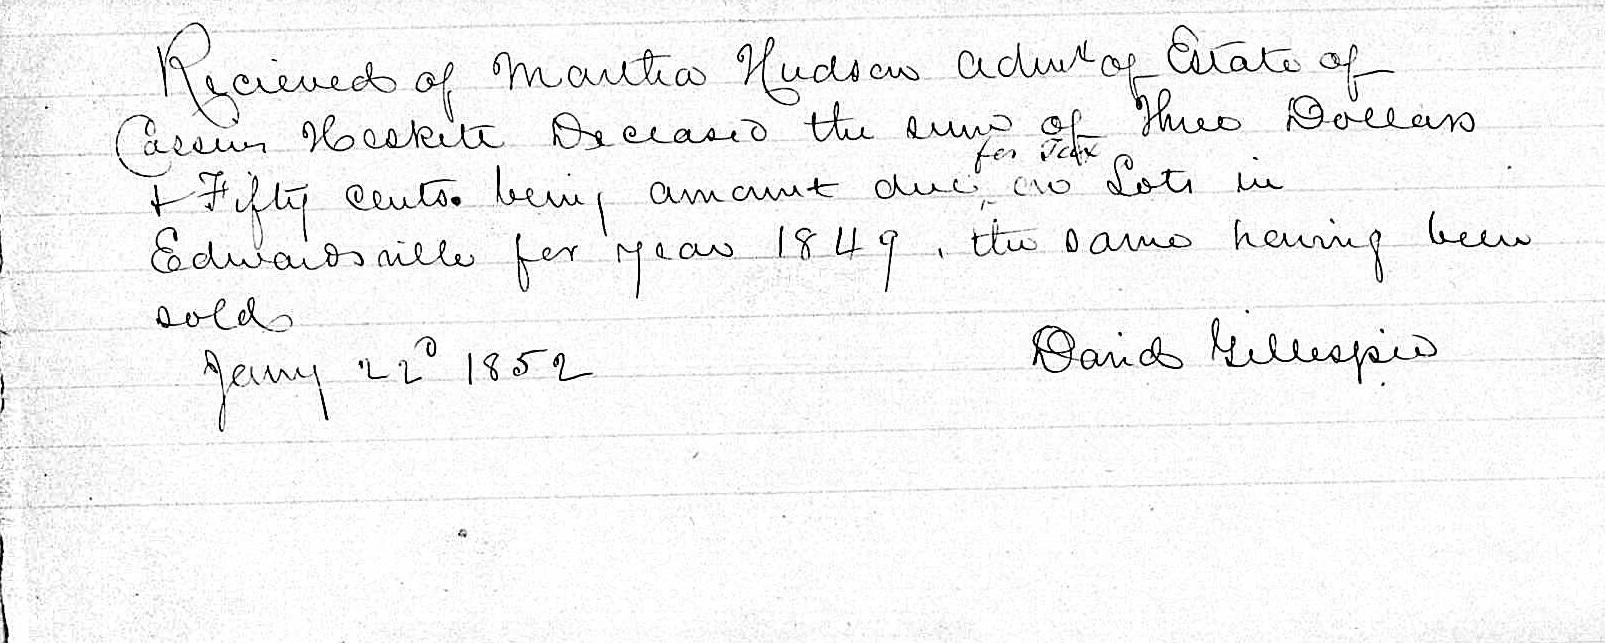 Recieved of Martha Hudson Admx of Estate of
Cassius Heskett Deceased the sum of Three Dollars
for Tax
& Fifty cents. being amount due, on Lots in
Edwardsville for year 1849, the same having been
sold
Jany 22d 1852
David Gillespie